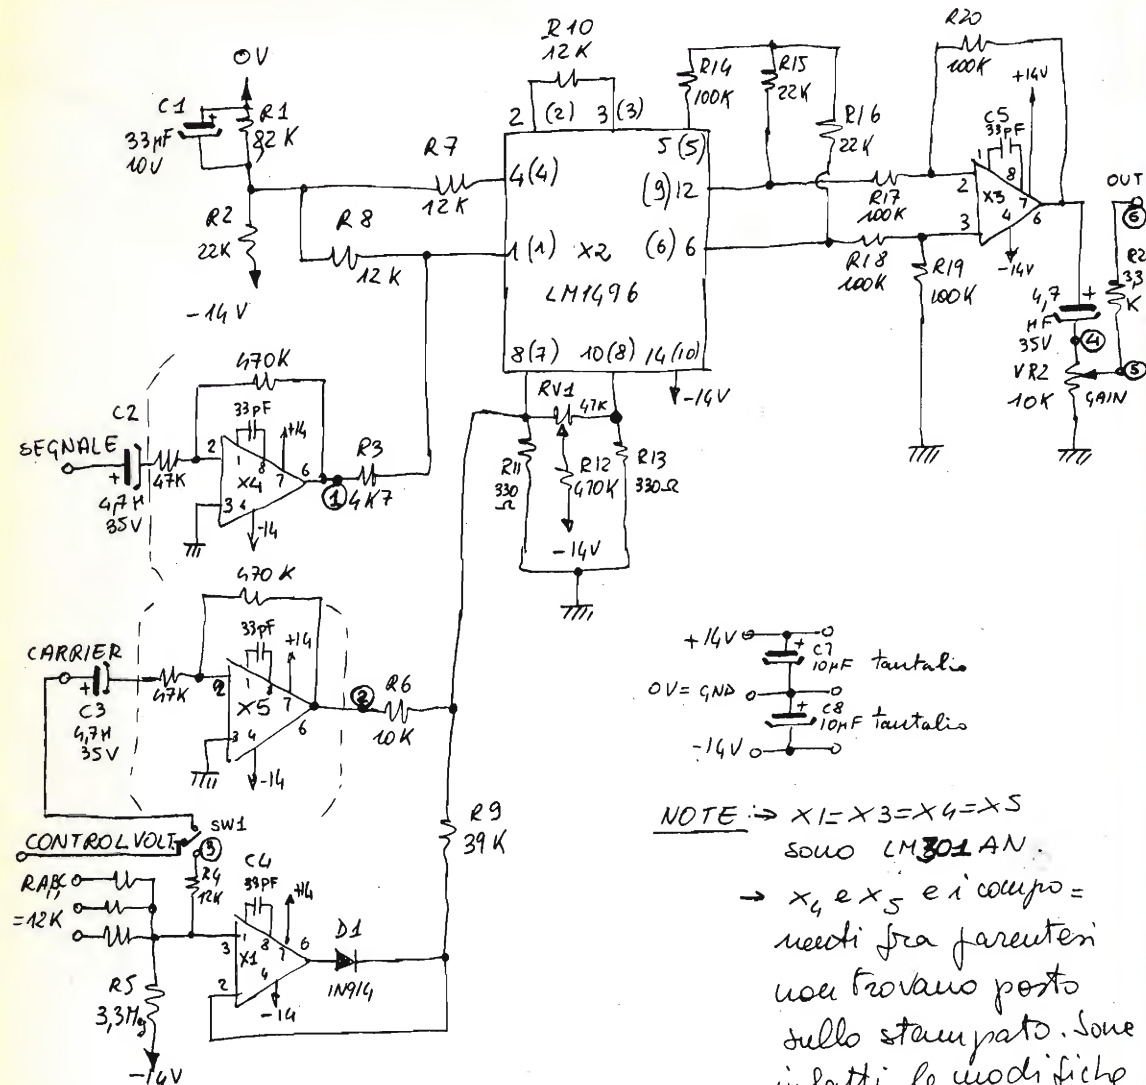 OV
C1
+
33µF
10V
R1
82K
R2
22K
-14V
R7
12K
R8
12K
R10
12K
2 (2)
3 (3)
4(4)
1(1)
X2
LM1496
5(5)
(9)12
(6)6
8(7)
10(8)
14(10)
-14V
R14
100K
R15
22K
R16
22K
R17
100K
R18
100K
R19
100K
R20
100K
+14V
C5
33pF
1
8
2
X3
7
3
4
6
-14V
OUT
6
R2
3,3
K
4,7
µF
35V
+
4
VR2
10K
GAIN
5
RV1
47K
R11
330
Ω
R12
470K
R13
330Ω
-14V
C2
SEGNALE
+
4,7µ
35V
47K
470K
33pF
+14
2
1
8
X4
7
6
3
4
-14
1
R3
4K7
CARRIER
+
C3
4,7µ
35V
47K
470K
33pF
+14
2
1
8
X5
7
6
3
4
-14
2
R6
10K
R9
39K
CONTROL VOLT.
SW1
3
RA,B,C
=12K
R4
12K
C4
33pF
+14
3
1
8
X1
7
6
2
4
-14
D1
1N914
R5
3,3M
-14V
+14V
+ C7
10µF tantalio
0V=GND
+ C8
10µF tantalio
-14V
NOTE :→ X1=X3=X4=X5
sono LM301AN.
→ X4 e X5 e i compo=
nenti fra parentesi
non trovano posto
sullo stampato. Sono
infatti le modifiche